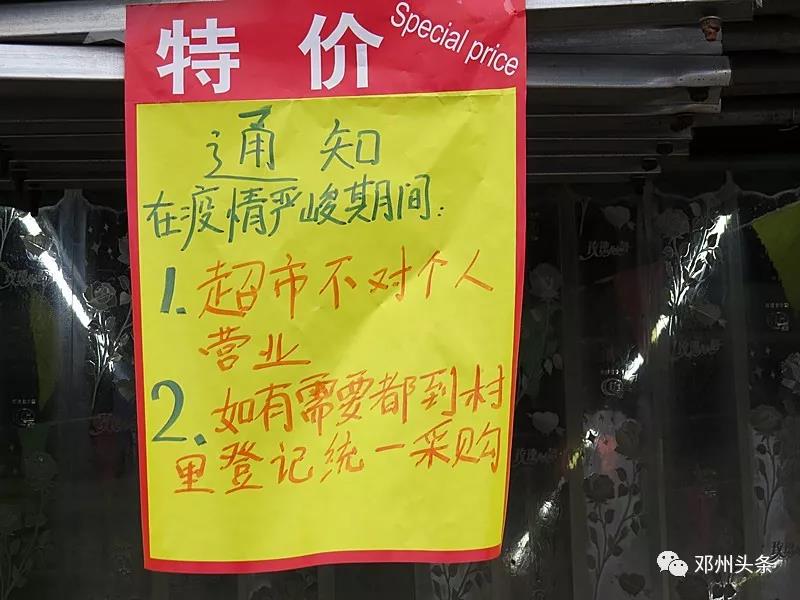 特价
Special price
通知
在疫情严峻期间:
1. 超市不对个人
营业
2. 如有需要都到村
里登记统一采购
玫瑰
玫瑰
邓州头条